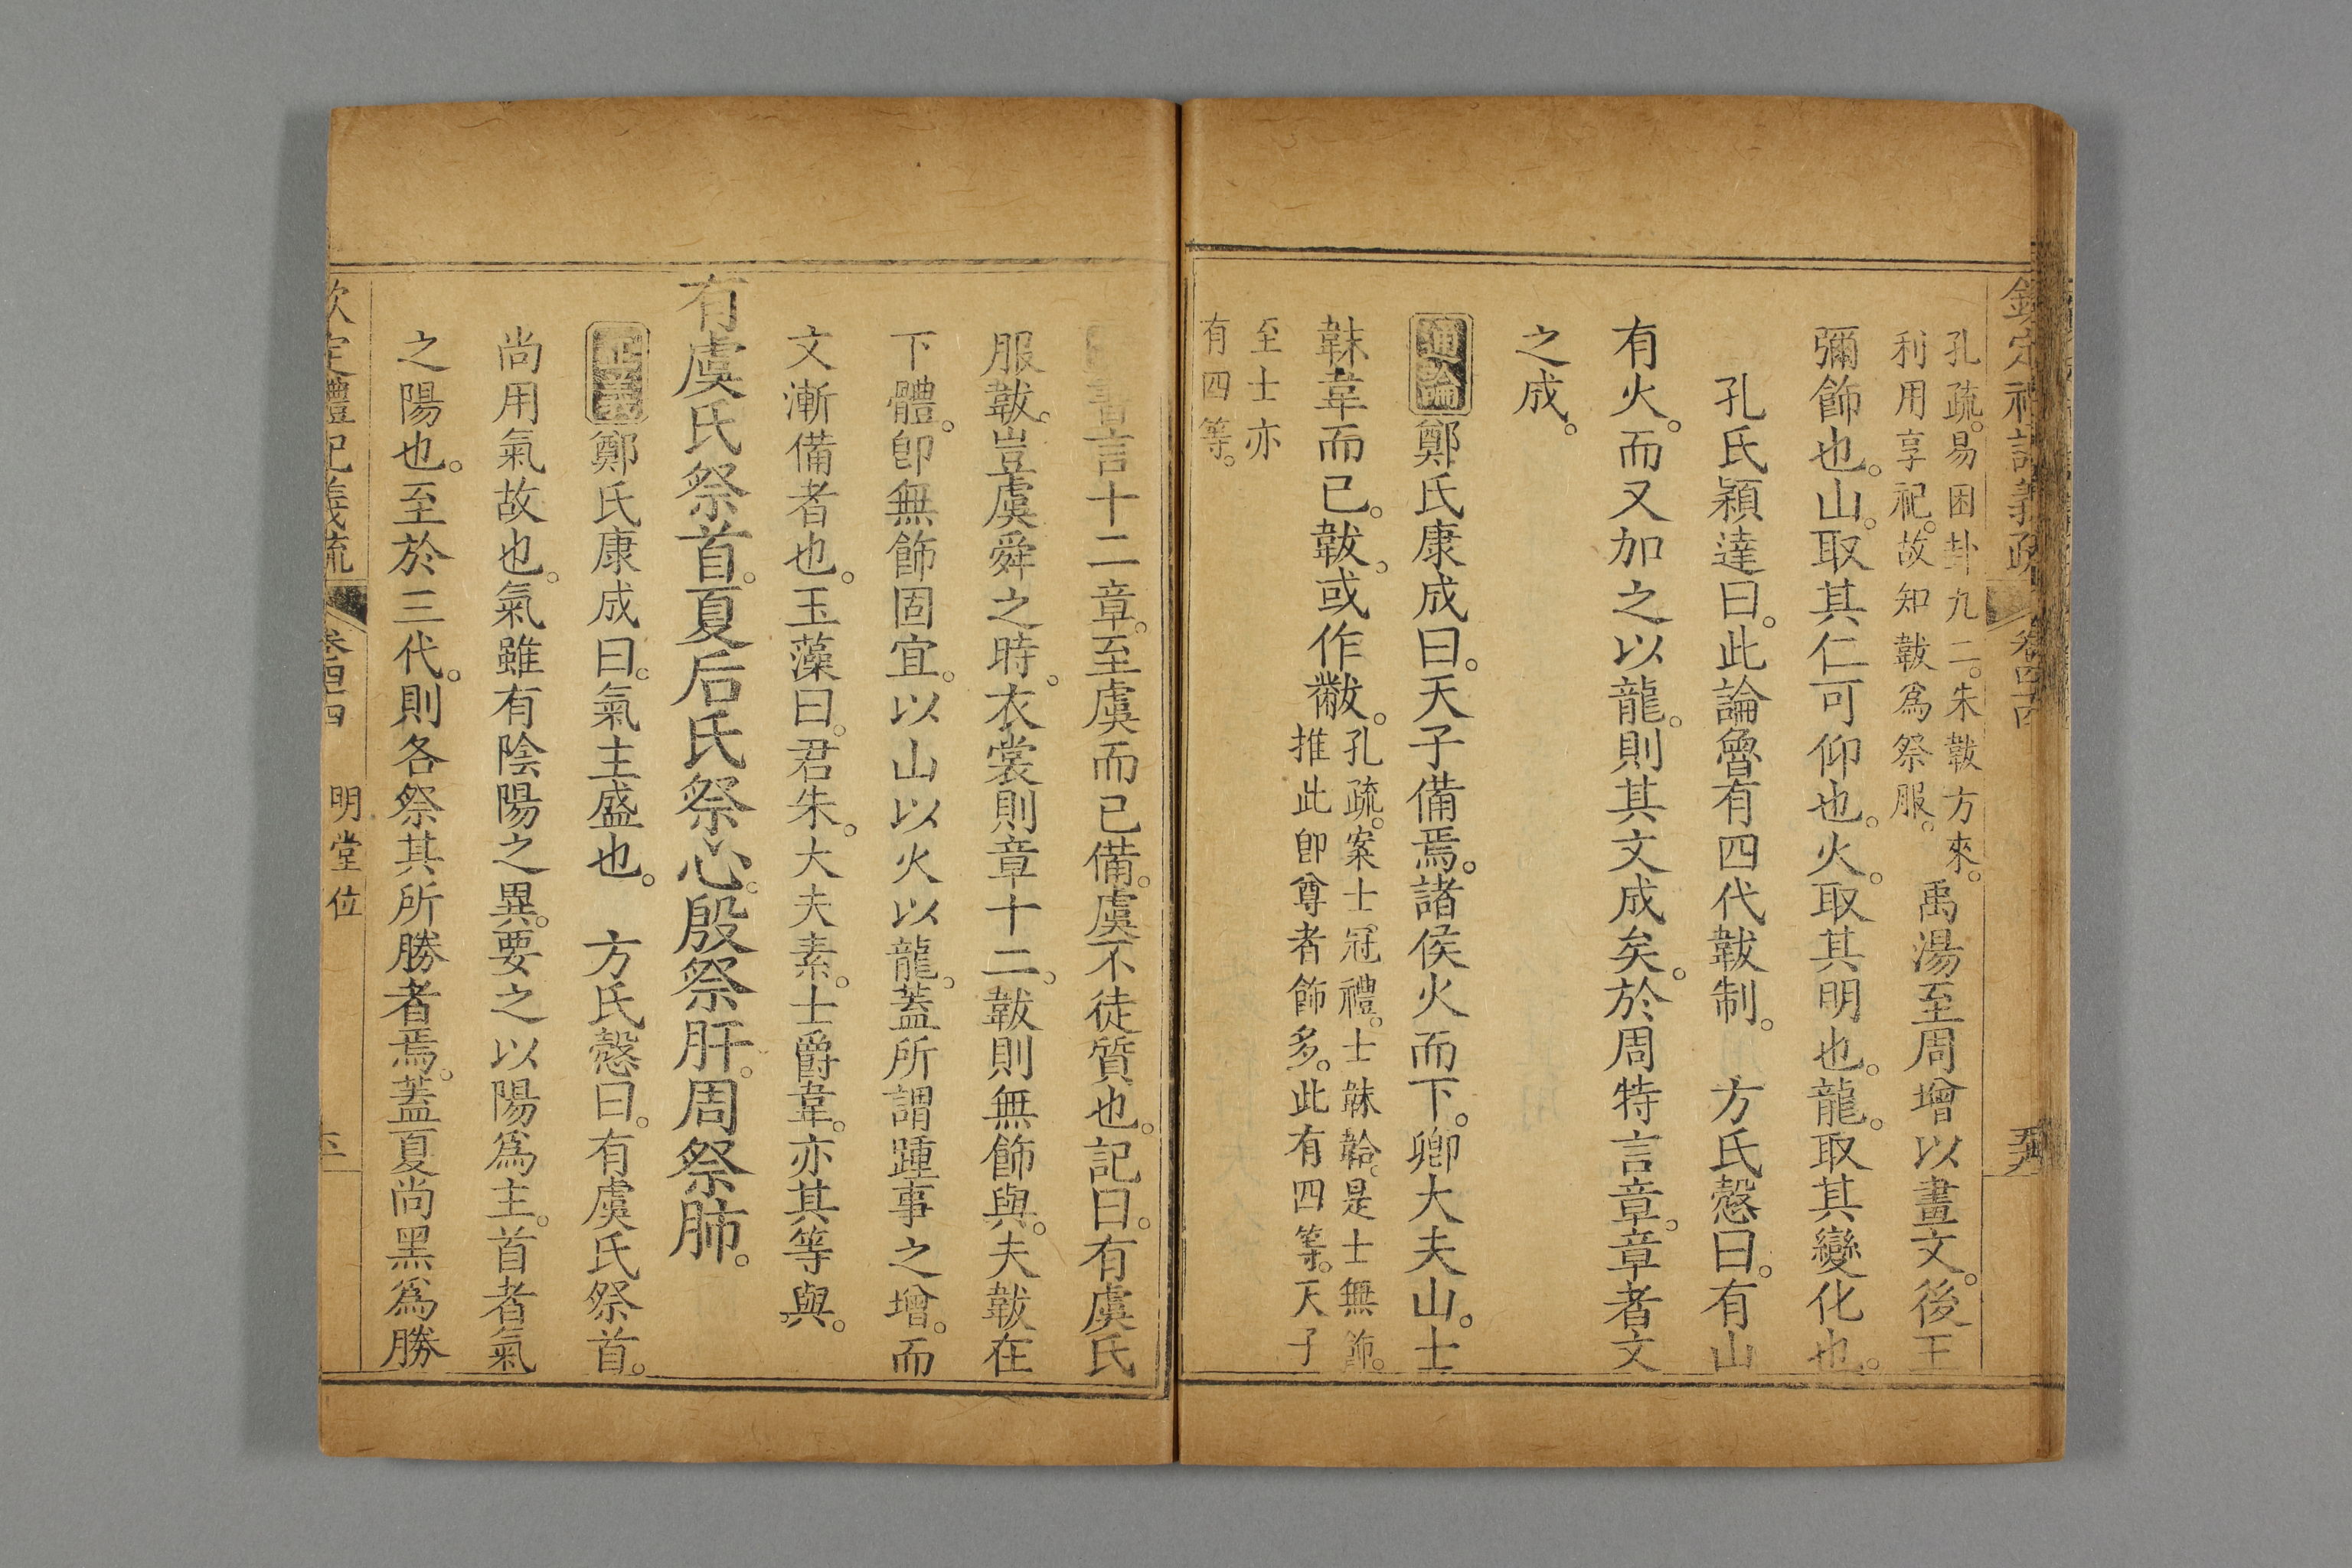 孔疏。易困卦九二。朱韍方來。
利用享祀。故知韍爲祭服。
禹湯至周增以畫文。後王
彌飾也。山。取其仁可仰也。火。取其明也。龍。取其變化也。
孔氏穎達曰。此論魯有四代韍制。 方氏慤曰。有山
有火。而又加之以龍。則其文成矣。於周特言章。章者文
之成。
通論鄭氏康成曰。天子備焉。諸侯火而下。卿大夫山。士
韎韋而已。韍。或作黻。
孔疏。案士冠禮。士韎韐。是士無飾。
推此卽尊者飾多。此有四等。天子
至士亦
有四等。
書言十二章。至虞而已備。虞不徒質也。記曰。有虞氏
服韍。豈虞舜之時。衣裳則章十二。韍則無飾與。夫韍在
下體。卽無飾固宜。以山以火以龍。蓋所謂踵事之增。而
文漸備者也。玉藻曰。君朱。大夫素。士爵韋。亦其等與。
有虞氏祭首。夏后氏祭心。殷祭肝。周祭肺。
正義鄭氏康成曰。氣主盛也。 方氏慤曰。有虞氏祭首。
尚用氣故也。氣雖有陰陽之異。要之以陽爲主。首者氣
之陽也。至於三代。則各祭其所勝者焉。蓋夏尚黑爲勝
欽定禮記義疏 卷四十四 明堂位